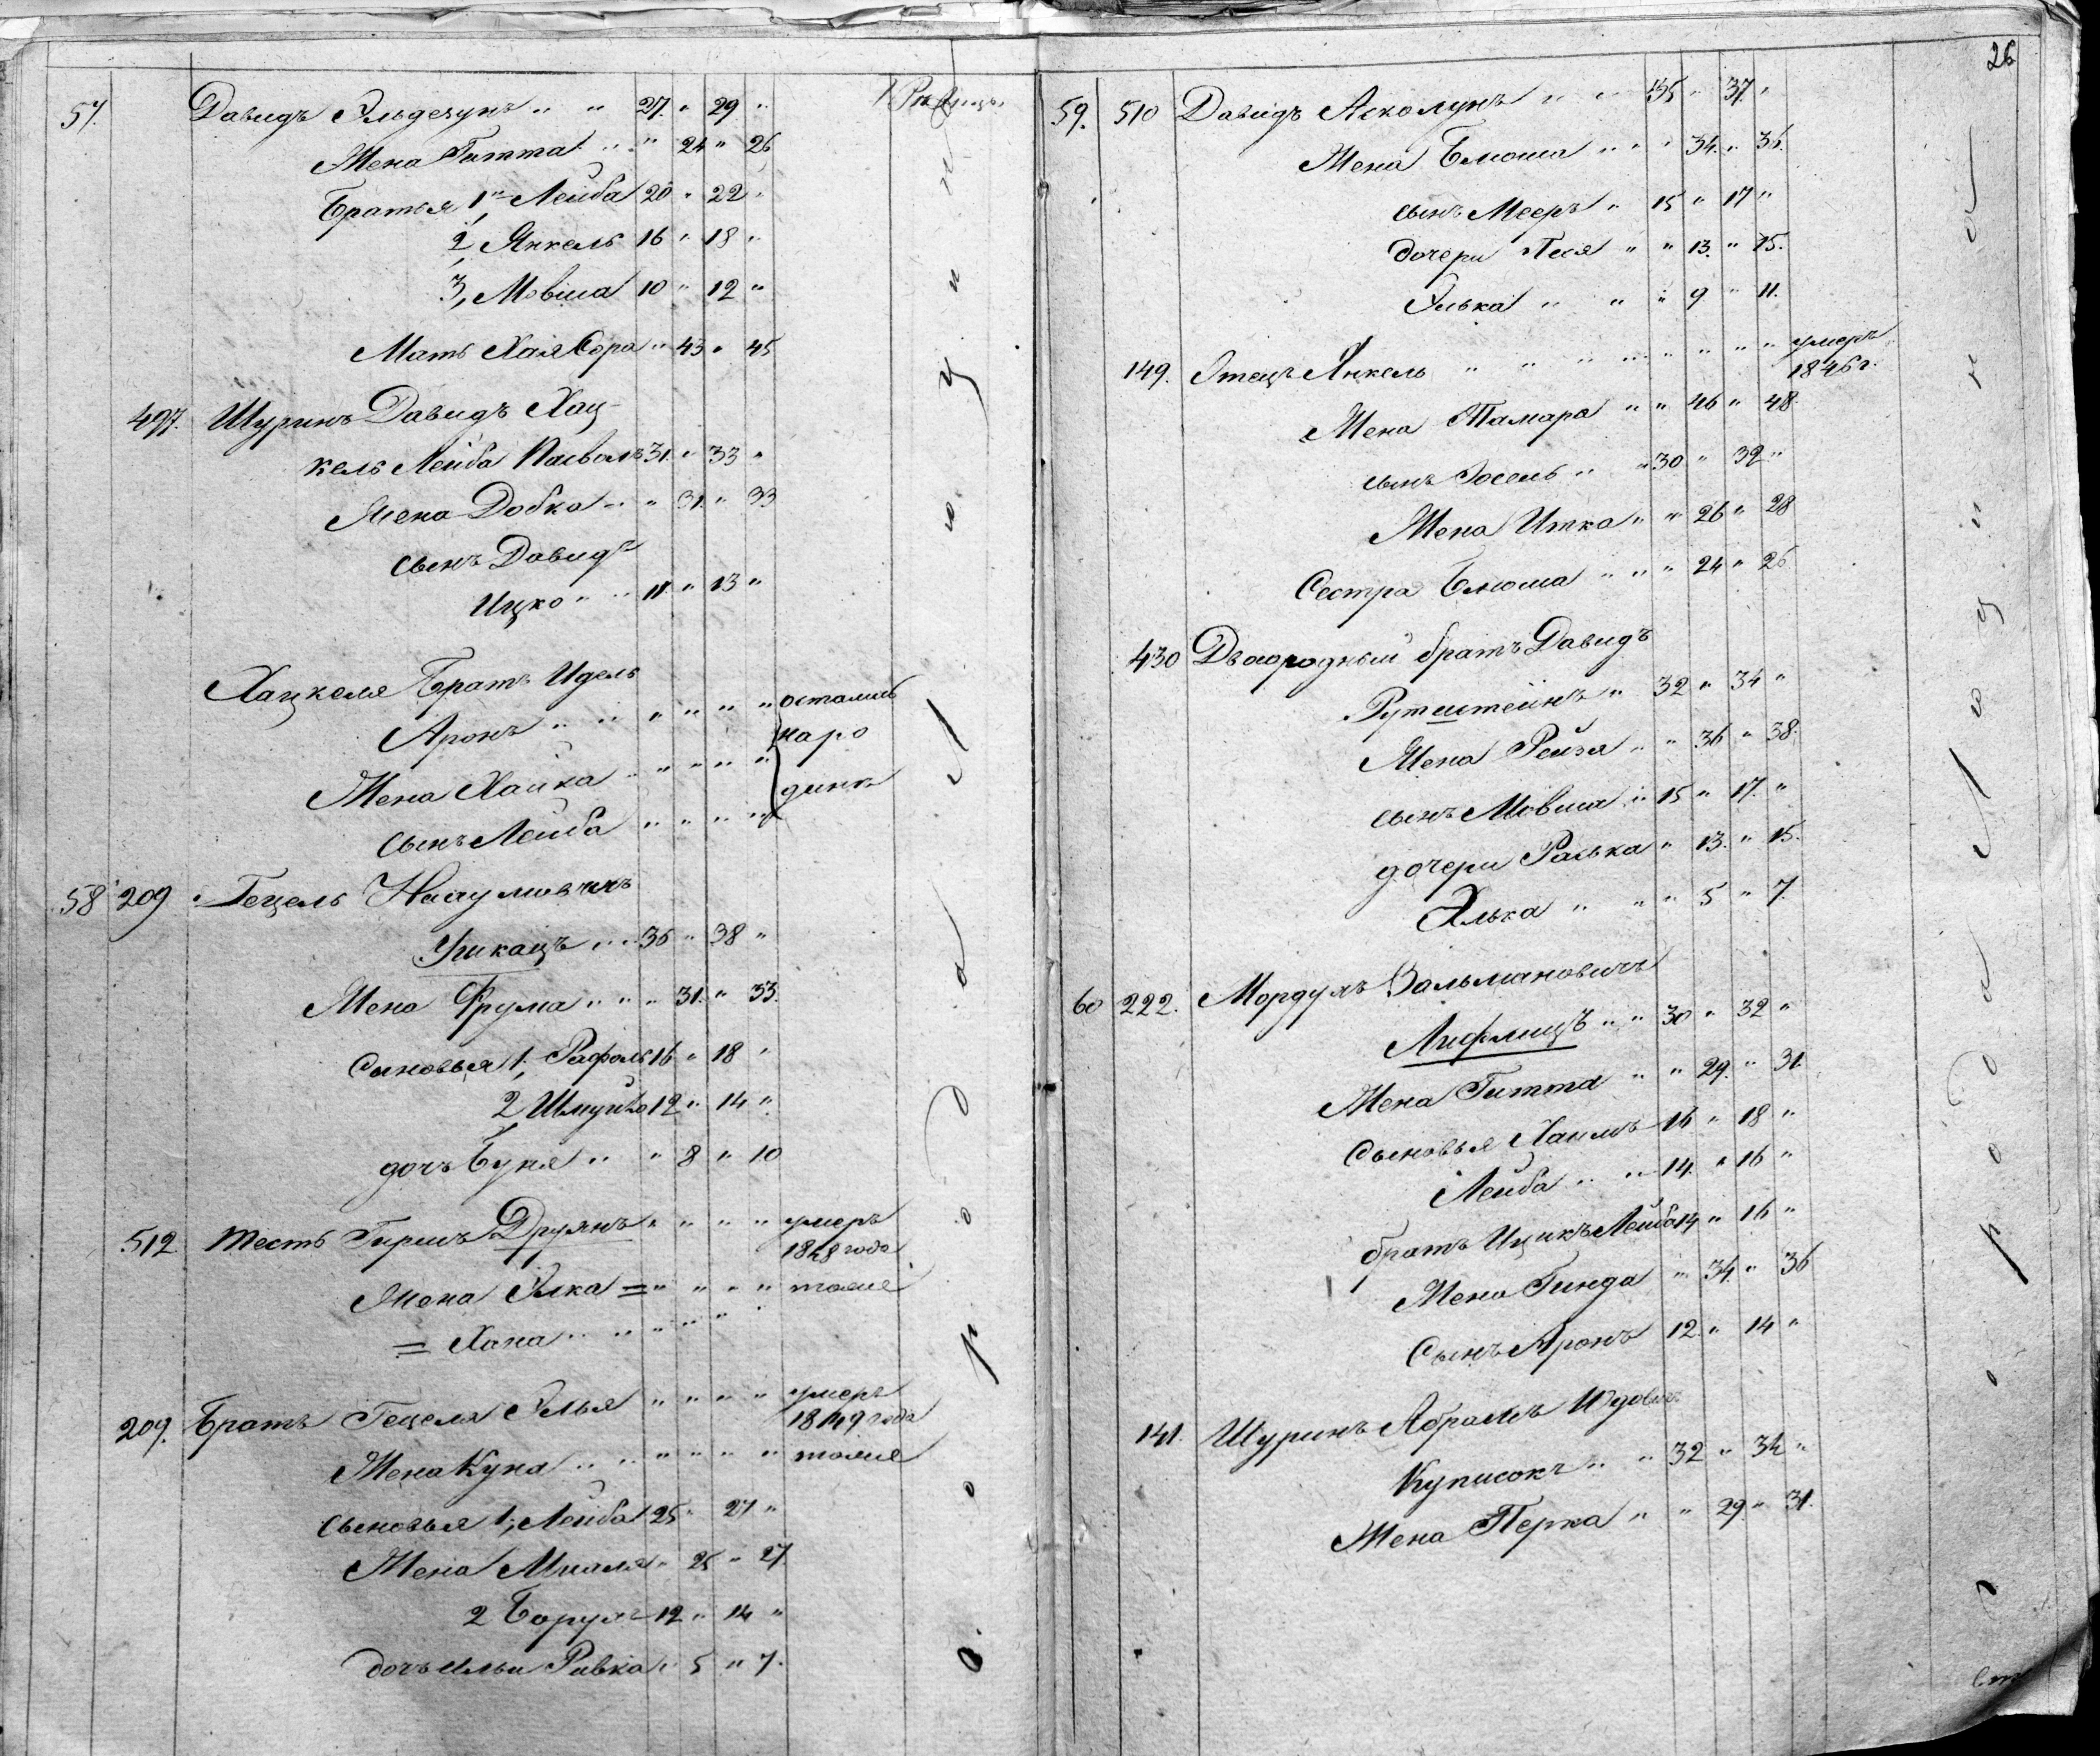 57. Давидъ Эльдечунъ " " 27. " 29 "
Жена Гитта " " 24 " 26
Братья 1й Лейба 20 " 22 "
2, Янкель 16 " 18 "
3, Мовша 10 " 12 "
Мать Хая Сора " 43 " 45
497. Шуринъ Давидъ Хац-
кель Лейба 31. " 33 "
Жена Добка " " 31. " 33
сынъ Давидъ
Ицко " " 11. " 13 "
Хацкеля Братъ Идель
Аронъ " " " " " " остались
наро
Жена Хайка " " " " "
динѣ
сынъ Лейба " " " "
58 209 Гецель
36 " 38 "
Жена Фрума " " " 31. " 33.
Сыновья 1, Рафаль 16 " 18 "
2 Шмуйло 12 " 14 "
дочь Буня " " 8 " 10
512 тесть Гиршъ Друянъ " " " " умеръ
1848 года
Жена Элка = " " " " тоже
= Хана " " " " "
209. Братъ Гецеля Элья " " " " умеръ
1849 года
Жена Куна " " " " " " тоже
Сыновья 1, Лейба 25 " 27 "
Жена " 25 " 27.
2 Борухъ 12 " 14 "
дочь Ривка " 5 " 7.
26
59. 510 Давидъ Асколунъ " " 35 " 37. "
Жена Блюма " " " 34. " 36.
сынъ Мееръ " 15 " 17 "
дочери Песя " " 13. " 15.
Элька " " " 9 " 11.
149. Отецъ Янкель " " " " " " " " умеръ
1846 г.
Жена Тамара " " 46 " 48.
сынъ Іосель " " 30 " 32 "
Жена Итка " " 26 " 28
Сестра Блюма " " " 24 " 26
430 Двоюродный братъ Давидъ
Рутштейнъ " 32 " 34 "
Жена Рейза " " 36 " 38.
сынъ Мовша " 15 " 17. "
дочери Раська " 13. " 15.
Элька " " " 5 " 7.
60 222. Мордухъ Зальмановичъ
Лифшицъ " " 30 " 32 "
Жена Гитта " " 29. " 31.
Сыновья Хаимъ 16 " 18 "
Лейба " " 14. " 16 "
братъ Ицикъ Лейба 14 " 16 "
Жена Гинда " 34 " 36
Сынъ Аронъ 12. " 14 "
141. Шуринъ Абрамъ
Куписокъ " " 32 " 34 "
Жена Перка " " 29 " 31.